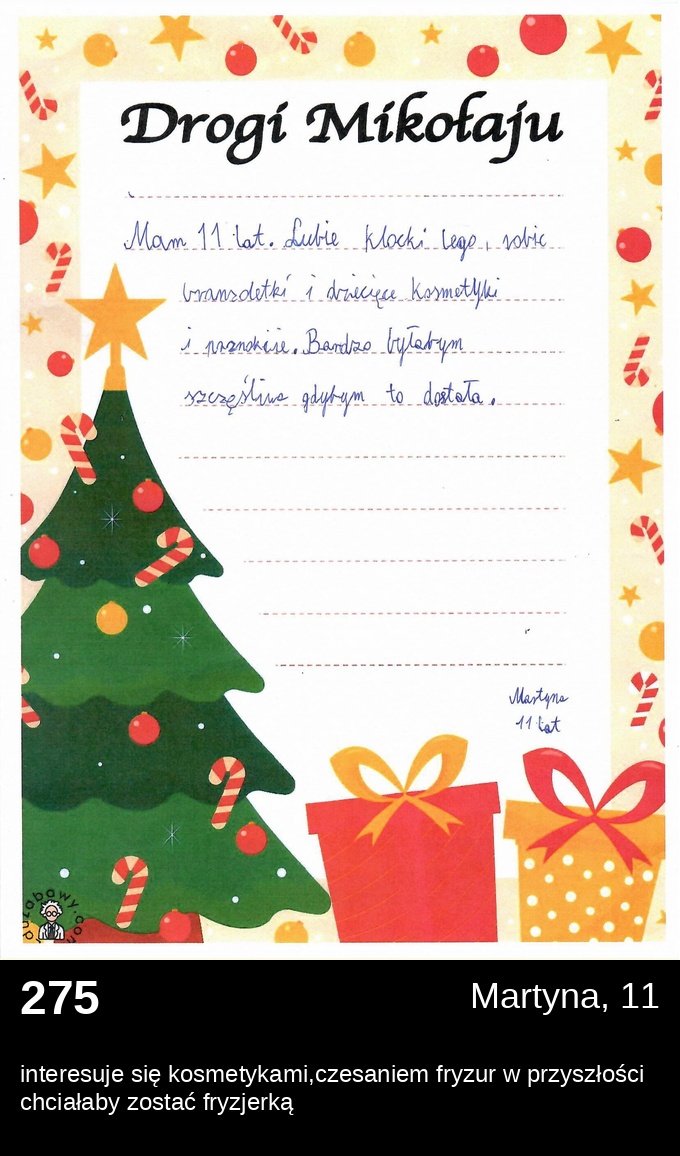 Drogi Mikołaju
Mam 11 lat. Lubię klocki lego, robic
branzoletki i dziecięce kosmetyki
i Bardzo byłabym
szczęśliwa gdybym to dostała.
Martyna
11 lat
275
Martyna, 11
interesuje się kosmetykami,czesaniem fryzur w przyszłości
chciałaby zostać fryzjerką